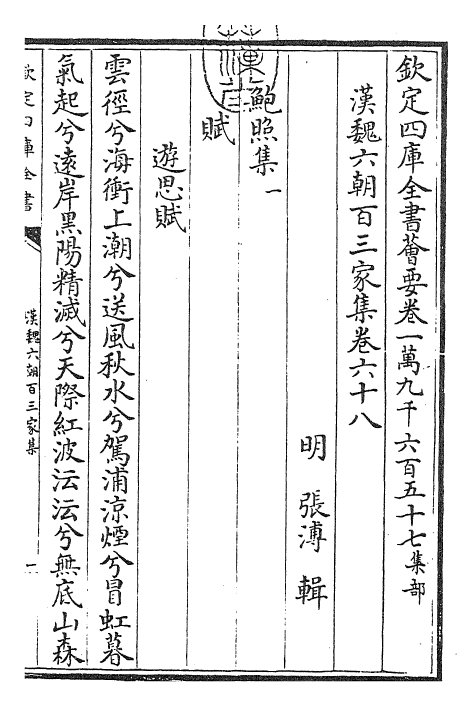 欽定四庫全書薈要卷一萬九千六百五十七集部
漢魏六朝百三家集卷六十八
明 張溥 輯
鮑照集一
賦
遊思賦
雲徑兮海衝上潮兮送風秋水兮駕浦涼煙兮冒虹暮
氣起兮遠岸黑陽精滅兮天際紅波沄沄兮無底山森
欽定四庫全書
漢魏六朝百三家集
一